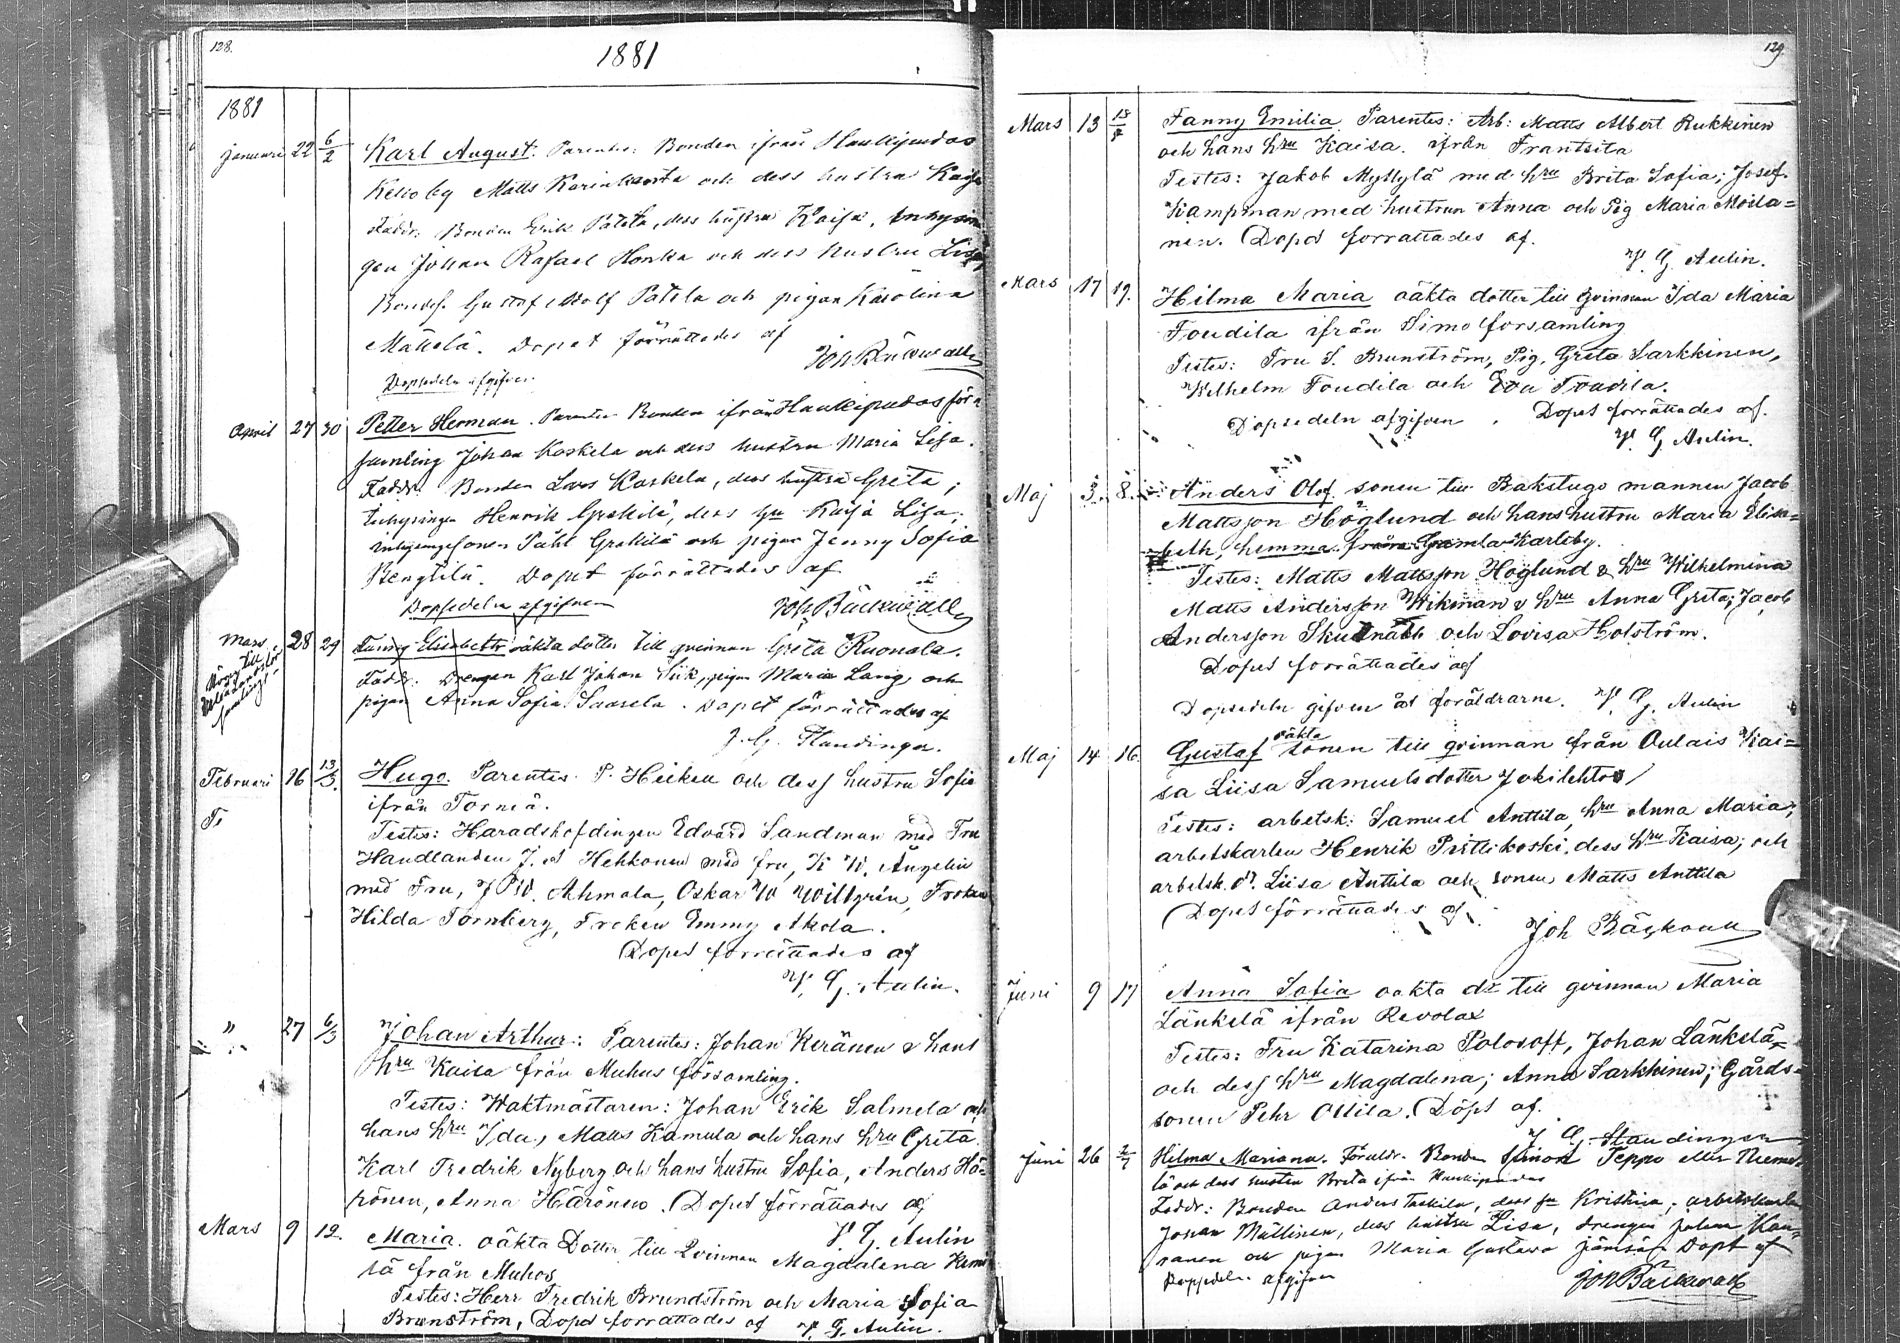 128.
1881
1881
Januari 22 6/2 Karl August. Parentes: Bonden ifrån Haukipudas
Kello by Matts och dess hustru Kaisa
Faddr. Bonden Erik Patela, dess hustru Kaisa, Inhysin
gen Johan Rafael Honka och dess hustru Lisa,
Bondes. Gustaf Adolf Patela och pigan Karolina
Mattila. Dopet förrättades af
Joh Bäckwall
Dopsedeln afgifven.
April 27 30 Petter Herman. Parentes Bonden ifrån Haukipudas för
samling Johan Koskela och dess hustru Maria Lisa.
Faddr. Bonden Lars Koskela, dess hustru Greta,
Inhysingen Henrik Grekilä, dess hu Kajsa Lisa,
inhysingesonen Påhl Grekilä och pigan Jenny Sofia
Bengtilä. Dopet förrättades af
Dopsedeln afgifven
Joh. Bäckwall
Mars 28 29 Fanny Elisabeth oäkta dotter till qvinnan Greta Ruonala.
till
Faddr. Drengen Karl Johan Siik, pigan Maria Lang, och
pigan Anna Sofia Saarela. Dopet förrättades af
J. G. Staudinger.
Februari 16 13/3. Hugo. Parentes P. Heikell och dess hustru Sofia
ifrån Torneå.
Fe
Testes: Haradshofdingen Edvard Sandman med Fru
Handlanden J. A Hehkonen med fru, K K. Ängelin
med Fru, J W. Ahmala, Oskar W Willgrén, Froken
Hilda Tornberg, Froken Emmy Akola.
Dopet forrättades af
V. G. Aulin.
" 27 6/3 Johan Arthur: Parentes: Johan Keränen & hans
hru Kaisa från Muhus församling.
Testes: Waktmästaren: Johan Erik Salmela och
hans hru Ida, Matts Kamula och hans hru Greta.
Karl Fredrik Nyberg och hans hustru Sofia, Anders Hä-
rönen, Anna Härönen. Dopet förrättades af
V. G. Aulin
Mars 9 12. Maria. oäkta Dotter till Qvinnan Magdalena
lä från Muhos
Testes: Herr Fredrik Brundström och Maria Sofia
Brunström, Dopet forrättades af V. G. Aulin.
129.
Mars 13 18/4 Fanny Emilia Parentes: Arb: Matts Albert Rukkinen
och hans hru Kaisa. ifrån Frantsila
Testes: Jakob Myllylä med hru Brita Sofia; Josef
Kampman med hustrun Anna och Pig Maria Moila=
nen. Dopet forrattades af.
V. G. Aulin.
Mars 17 19. Hilma Maria oäkta dotter till Qvinnan Ida Maria
Foudila ifrån Simo forsamling
Testes: Fru S. Brunström, Pig, Greta Sarkkinen,
Wilhelm Foudila och Eva Foudila.
Dopsedeln afgifven. Dopet forrättades af.
V. G. Aulin.
Maj 3. 8. Anders Olof sonen till Bakstugo mannen Jacob
Mattsson Höglund och hans hustru Maria Elisa=
beth, hemma från Gamla Karleby.
Testes: Matts Mattsson Höglund & hru Wilhelmina
Matts Andersson Wikman & hru Anna Greta; Jacob
Andersson Skutnabb och Lovisa Holström.
Dopet forrättades af
Dopsedeln gifven åt föräldrarne. V. G. Aulin
Maj 14 16. Gustaf oäkta sonen till qvinnan från Oulais Kai=
sa Liisa Samuelsdotter Jokilehto
Testes: arbetsk: Samuel Anttila, hru Anna Maria,
arbetskarlen Henrik Prittikoski, dess hru Kaisa; och
arbetsk. dr. Liisa Anttila och sonen Matts Anttila
Dopet förrättades af.
Joh Bäckwall
Juni 9 17 Anna Sofia oäkta dr till qvinnan Maria
Länkelä ifrån Revolax
Testes: Fru Katarina Polosoff, Johan Länkelä
och dess hru Magdalena; Anna Sarkkinen; Gårds-
sonen Pehr Ollila. Döpt af.
J G Staudinger
Juni 26 2/7 Hilma Mariana. Föräldr. Bonden Simon Teppo eller Nieme-
lä och dess hustru Brita ifrån Haukipudas
Faddr: Bonden Anders Takkila, dess hu Kristina, arbetskarlen
Johan Mällinen, dess hustru Lisa, drengen Johan Kau-
ranen och pigan Maria Gustava Jämsä Döpt af
Dopsedeln afgifven
Joh Bäckwall